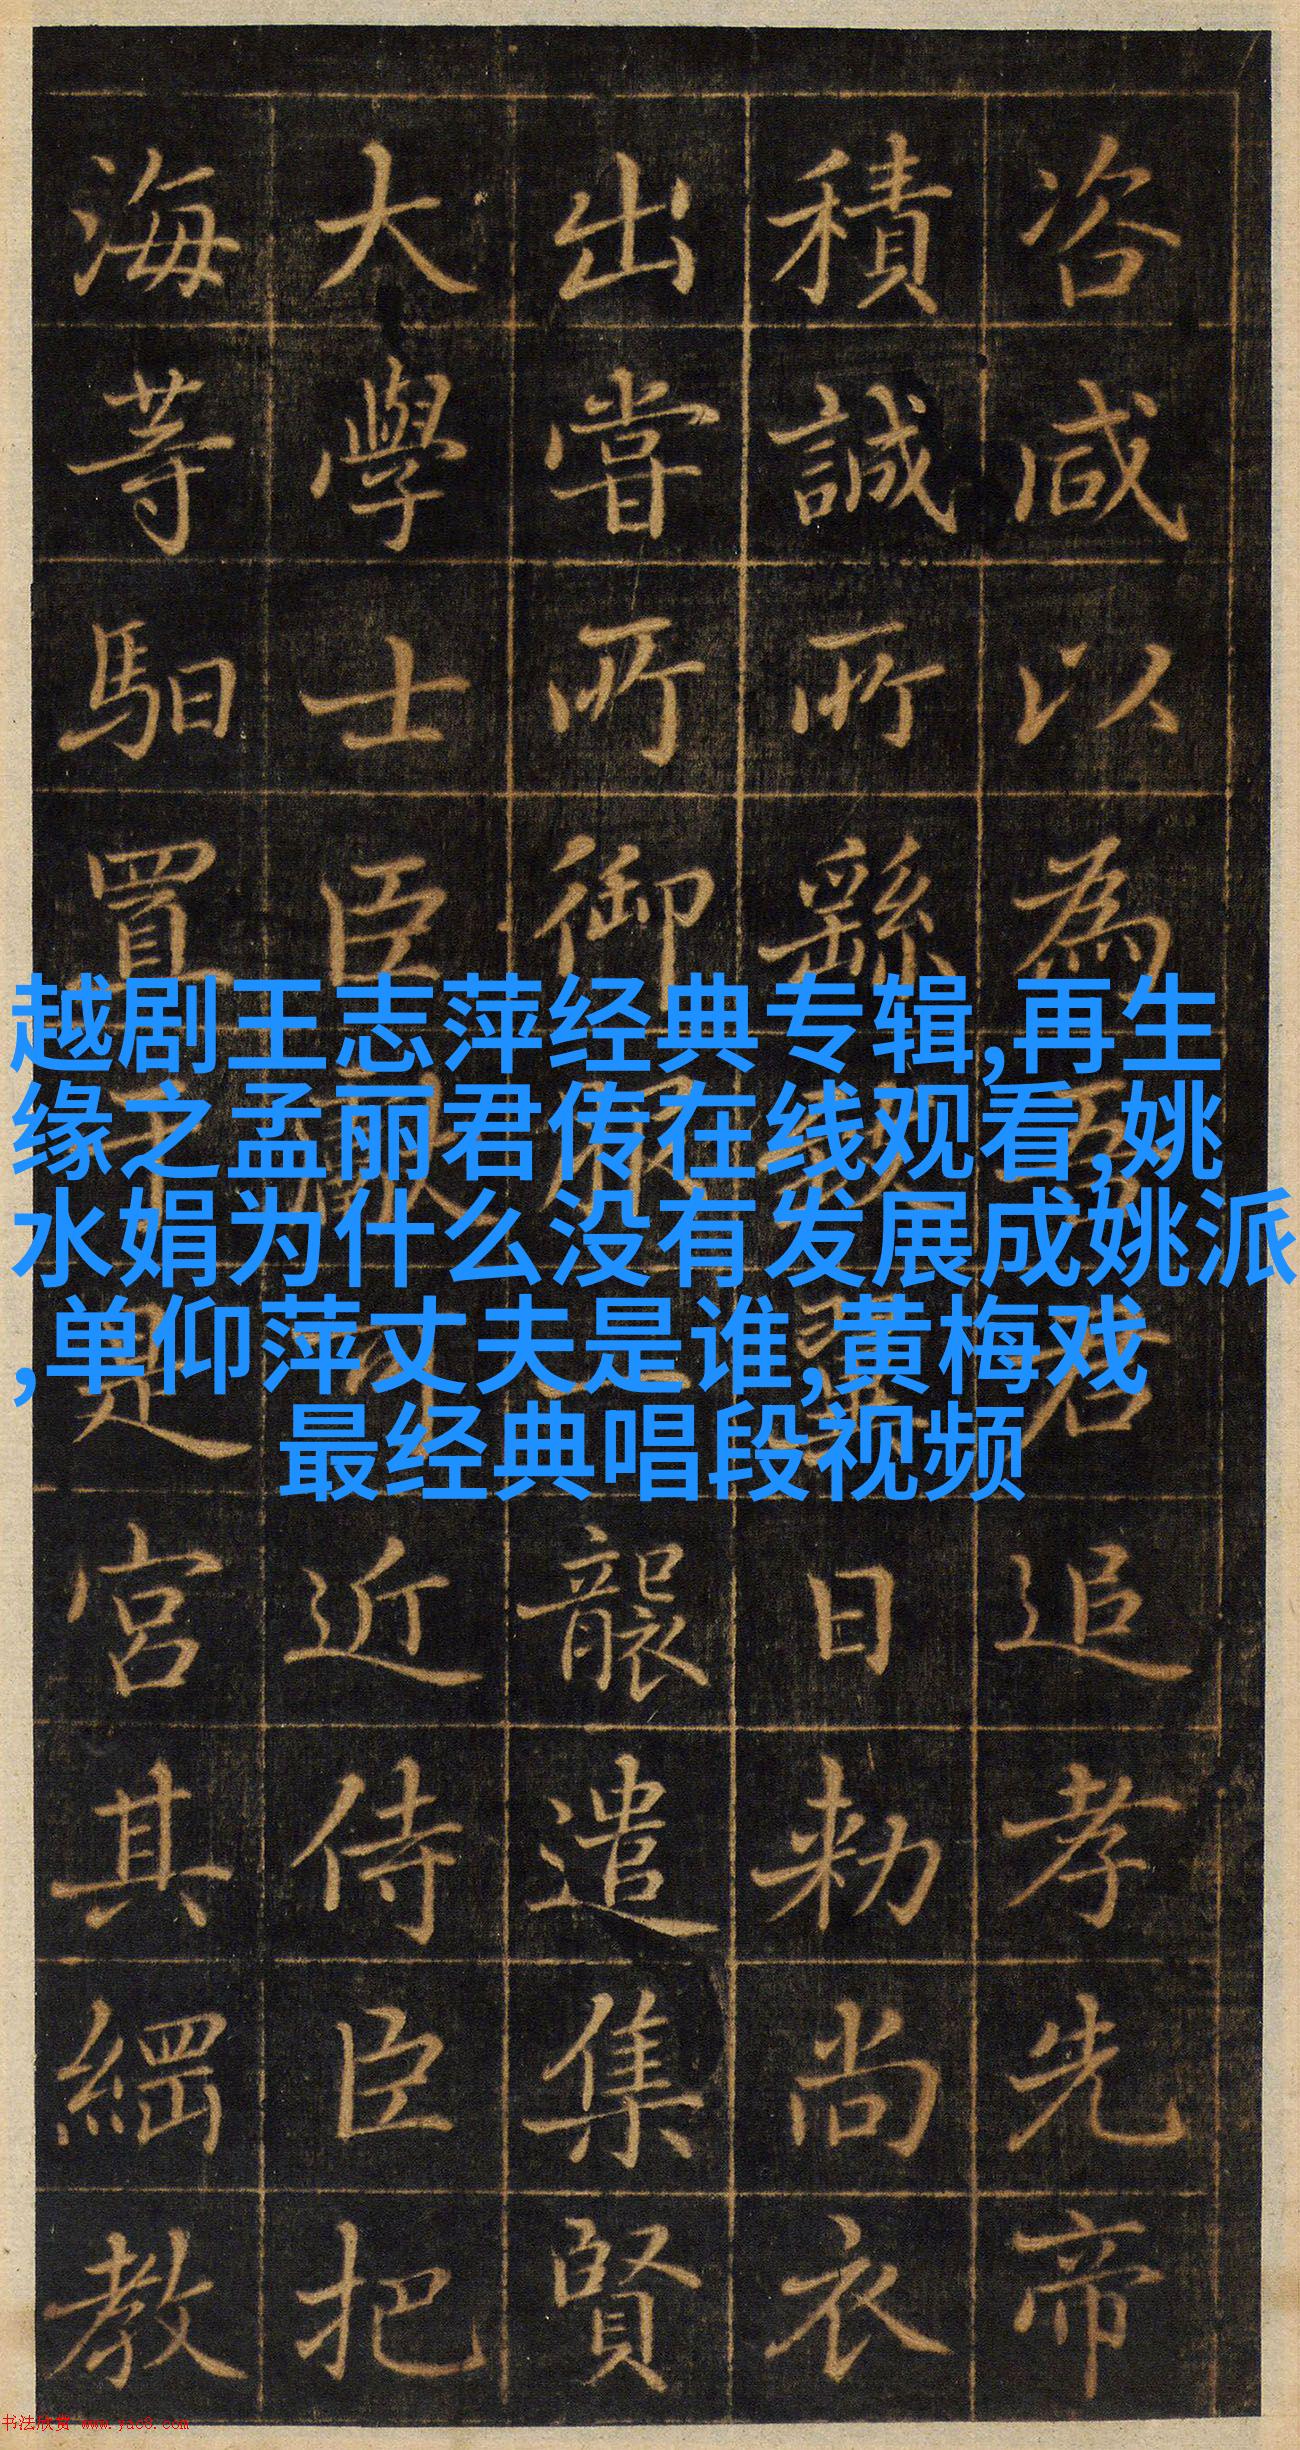 咨咸以為
追孝先帝
積誠所繇
日敕尚衣
出嘗所御
襲遣集賢
大學士臣
近侍臣把
海等馹置
宮其綱教
越剧王志萍经典专辑,再生
缘之孟丽君传在线观看,姚
水娟为什么没有发展成姚派
,单仰萍丈夫是谁,黄梅戏
最经典唱段视频
书法欣赏 www.yac8.com